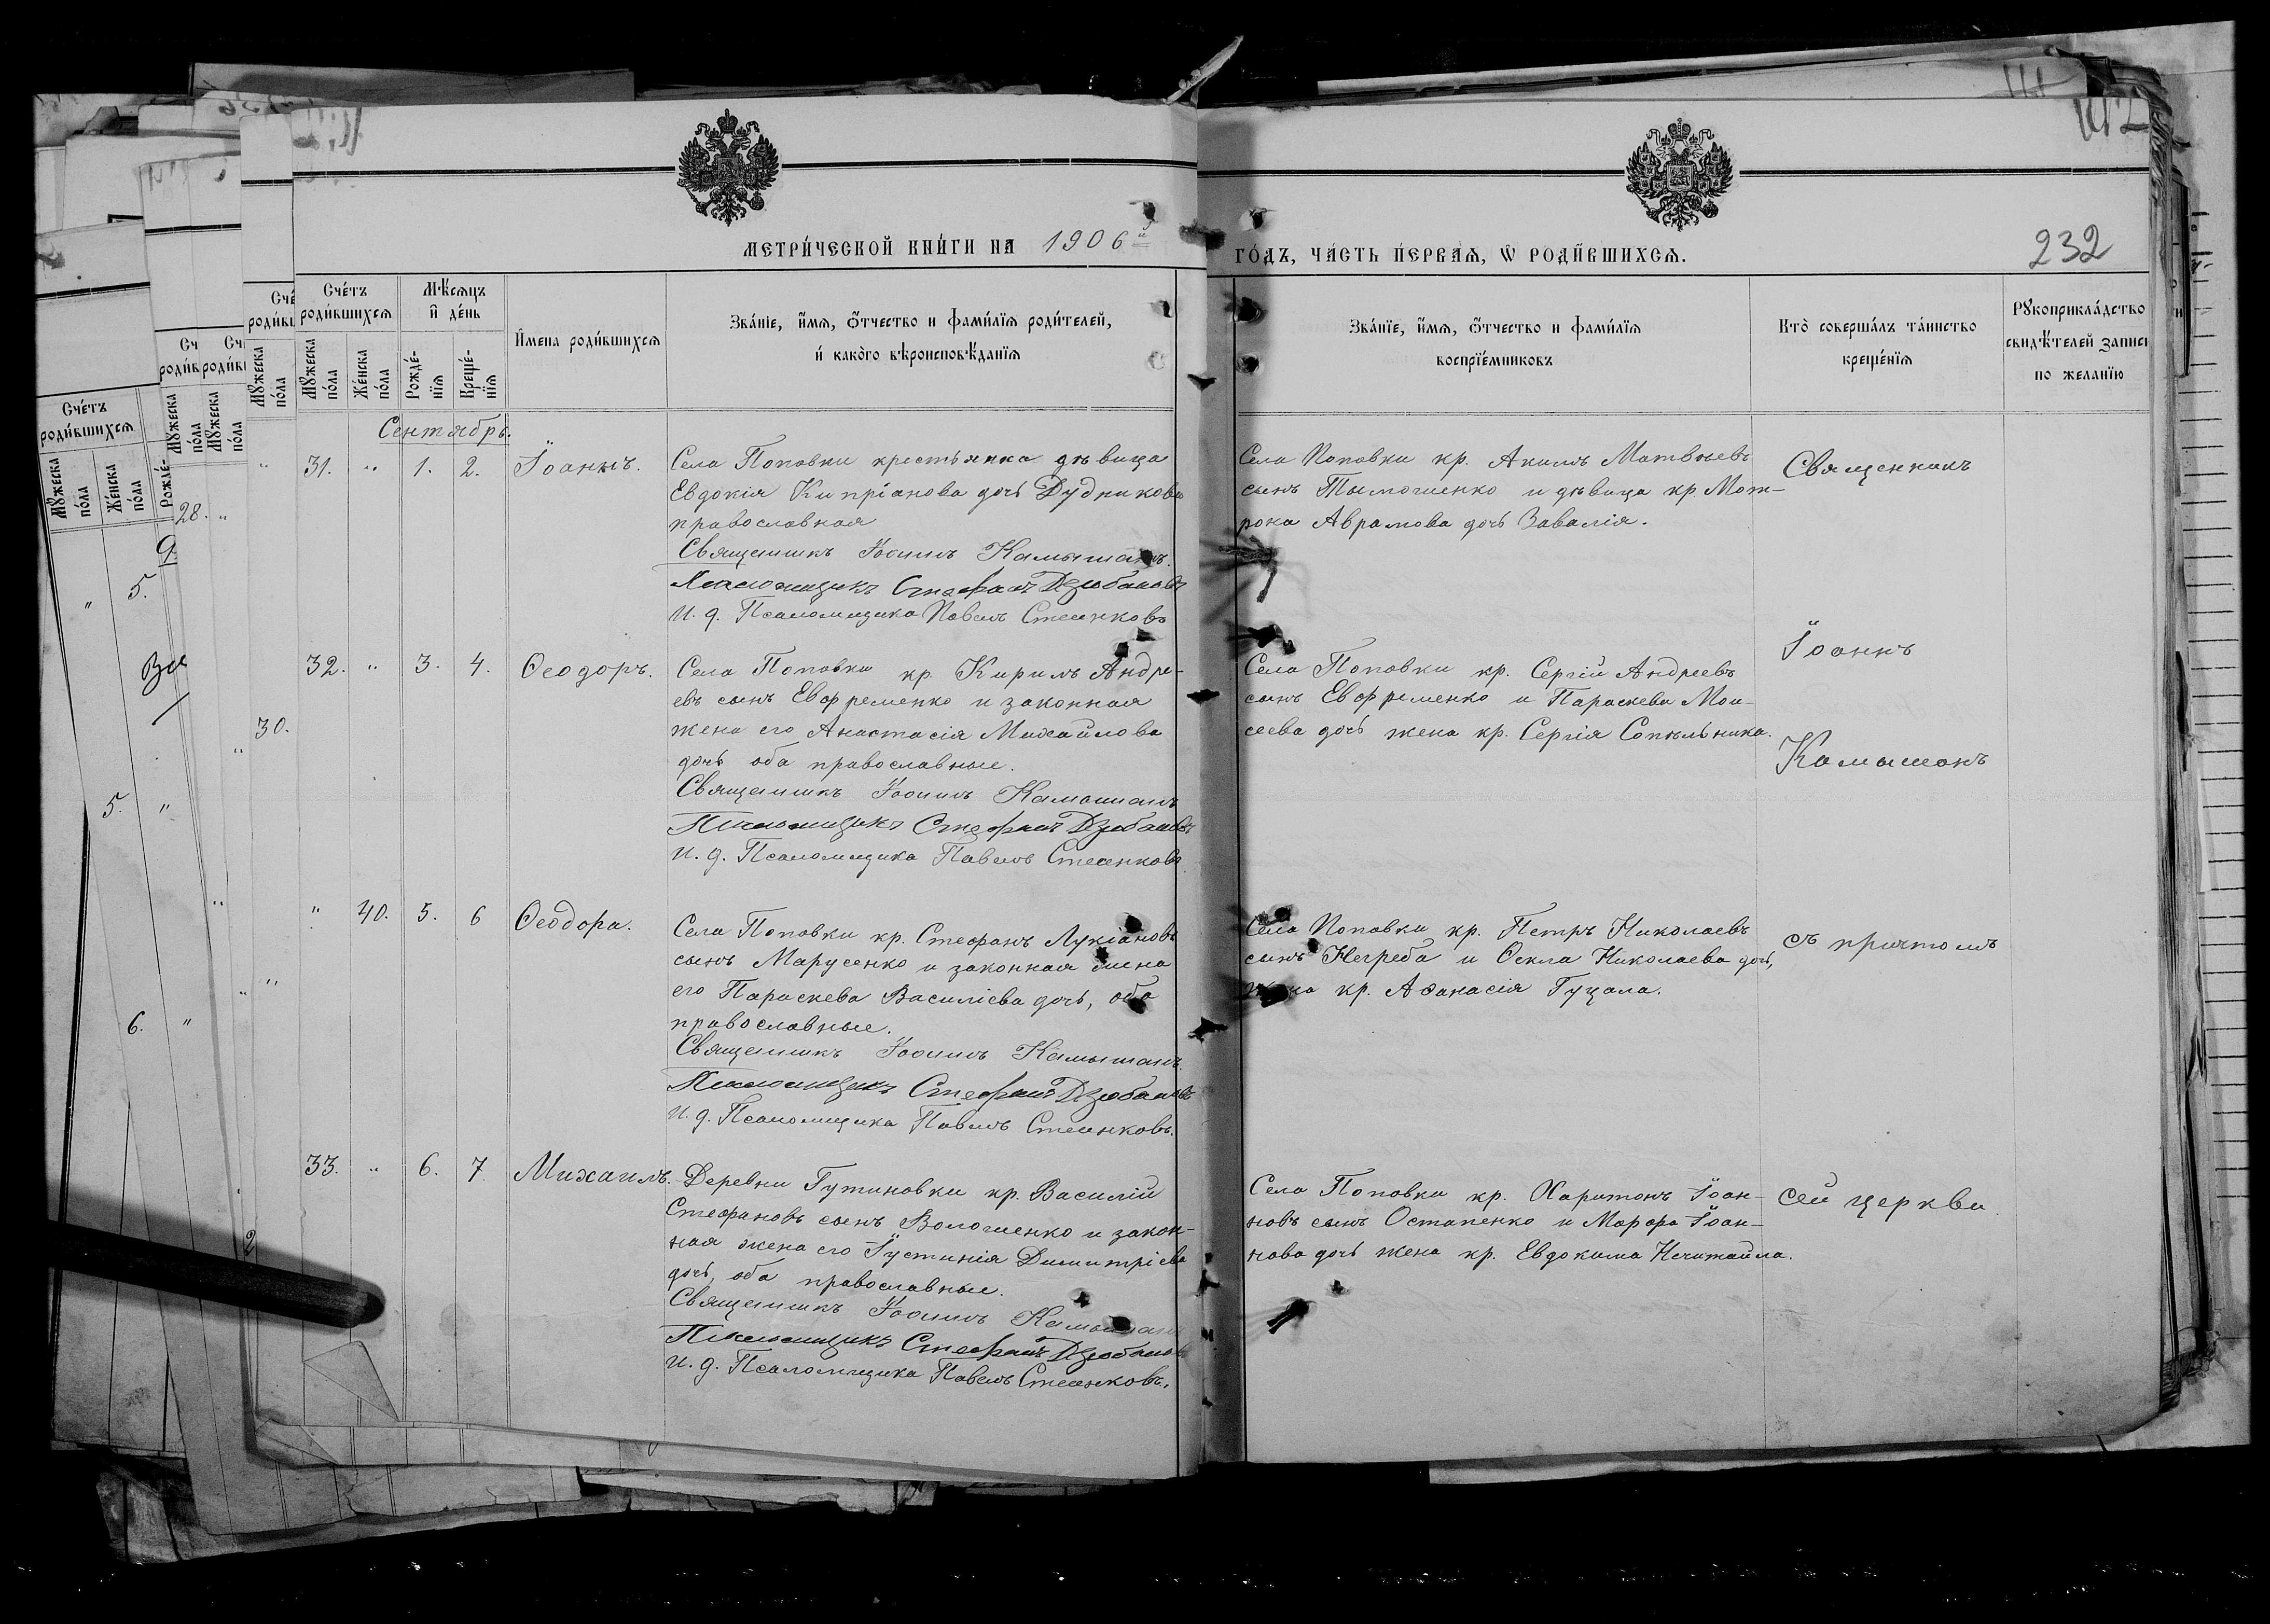 МЕТРИ́ЧЕСКОЙ КНИ́ГИ НА 1906й
ГО́ДЪ, ЧА́СТЬ ПЕ́РВАѦ, Ѡ РОДИ́ВШИХСѦ.
232
Сче́тъ роди́вшихсѧ
Мꙋ́жеска по́ла
Же́нска по́ла
Мѣ́сѧцъ и҆ де́нь
Рожде́-нїѧ
Креще́-нїѧ
И҆мена роди́вшихсѧ
Зва́нїе, и҆́мѧ, ѻ҆́тчество и фами́лїѧ роди́телей,
и҆ како́го вѣроисповѣ́данїѧ
Зва́нїе, и҆́мѧ, ѻ҆́тчество и фами́лїѧ
воспрїе́мниковъ
Кто̀ соверша́лъ та́инство
креще́нїѧ
Рꙋкоприкла́дство
свидѣ́телей записи
по жела́нїю
Сентябрь.
31. " 1. 2. Іоаннъ.
Села Поповки крестьянка дѣвица
Евдокія Кипріанова дочь Дудникова
православная
Священникъ Іоаннъ Камышанъ.
Псаломщикъ Стефанъ Дзюбановъ
И. д. Псаломщика Павелъ Стеенковъ
Села Поповки кр. Акимъ Матвѣевъ
сынъ Тымошенко и дѣвица кр. Мот-
рона Аврамова дочь Завалія.
Священникъ
32. " 3. 4. Ѳеодоръ.
Села Поповки кр. Кирилъ Андре-
евъ сынъ Евфременко и законная
жена его Анастасія Михайлова
дочь оба православные.
Священникъ Іоаннъ Камышанъ
Псаломщикъ Стефанъ Дзюбановъ
И. д. Псаломщика Павелъ Стеенковъ
Села Поповки кр. Сергій Андреевъ
сынъ Евфременко и Параскева Мои-
сеева дочь жена кр. Сергія Сопѣльника.
Іоаннъ
Камышанъ
" 40. 5. 6 Ѳеодора.
Села Поповки кр. Стефанъ Лукіановъ
сынъ Марусенко и законная жена
его Параскева Василіева дочь, оба
православные.
Священникъ Іоаннъ Камышанъ.
Псаломщикъ Стефанъ Дзюбановъ
И. д. Псаломщика Павелъ Стеенковъ.
Села Поповки кр. Петръ Николаевъ
сынъ Негреба и Ѳекла Николаева дочь,
жена кр. Аѳанасія Гуцала.
съ причтомъ
33. " 6. 7. Михаилъ.
Деревни Гутиновки кр. Василій
Стефановъ сынъ Волошенко и закон-
ная жена его Іустинія Димитріева
дочь, оба православные.
Священникъ Іоаннъ Камышанъ
Псаломщикъ Стефанъ Дзюбановъ
И. д. Псаломщика Павелъ Стеенковъ.
Села Поповки кр. Харитонъ Іоан-
новъ сынъ Остапенко и Марфа Іоан-
нова дочь жена кр. Евдокима Нечитайла.
сей церкви.
Сче́тъ
роди́вшихсѧ
Мꙋ́жеска по́ла
Же́нска по́ла
Рожде́-
28. "
5.
30.
5. "
6. "